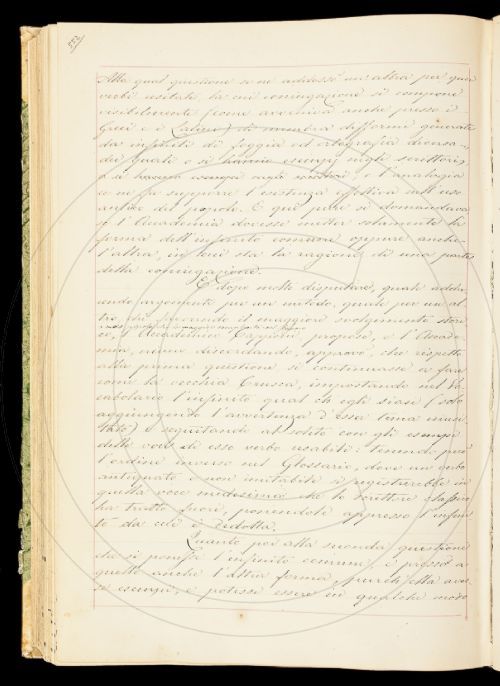 552
Alla qual questione se ne addusse un'altra per quei
verbi usitati, la cui conjugazione si compone
visibilmente (come avveniva anche presso i
Greci e i Latini) di membra difformi generate
da infiniti di foggia ed ortografia diversa
dei quali o si hanno esempi negli scrittori,
o si e l'analogia
ce ne fa supporre l'esistenza effettiva nell'uso
antico dei popoli. E qui pure si domandava
se l'Accademia dovesse metter solamente la
forma dell'infinito comune oppure anche
l'altra, in cui sta la ragione di una parte
della conjugazione.
E dopo molte disputare, quale addu-
cendo argomenti per un metodo, quale per un al-
tro, che
co, l'Accademico Capponi propose, e l'Accade-
mia, niuno discordando, approvò, che rispetto
alla prima questione si continuasse a fare
come la vecchia Crusca, impostando nel Vo-
cabolario l'infinito qual ch'egli siasi (solo
aggiungendo l'avvertenza d'esser tema inusi-
tato) e seguitando al solito con gli esempi
delle voci di esso verbo usabili: tenendo però
l'ordine inverso nel Glossario, dove un verbo
antiquato e non imitabile si registrerebbe in
quella voce medesima che lo scrittore classico
ha tratto fuori, ponendole appresso l'infini-
to da cui è dedotta.
Quanto poi alla seconda questione
che si ponesse l'infinito comune, e presso a
quello anche l'altra forma, purchè ella aves-
se esempii, e potesse essere in qualche modo